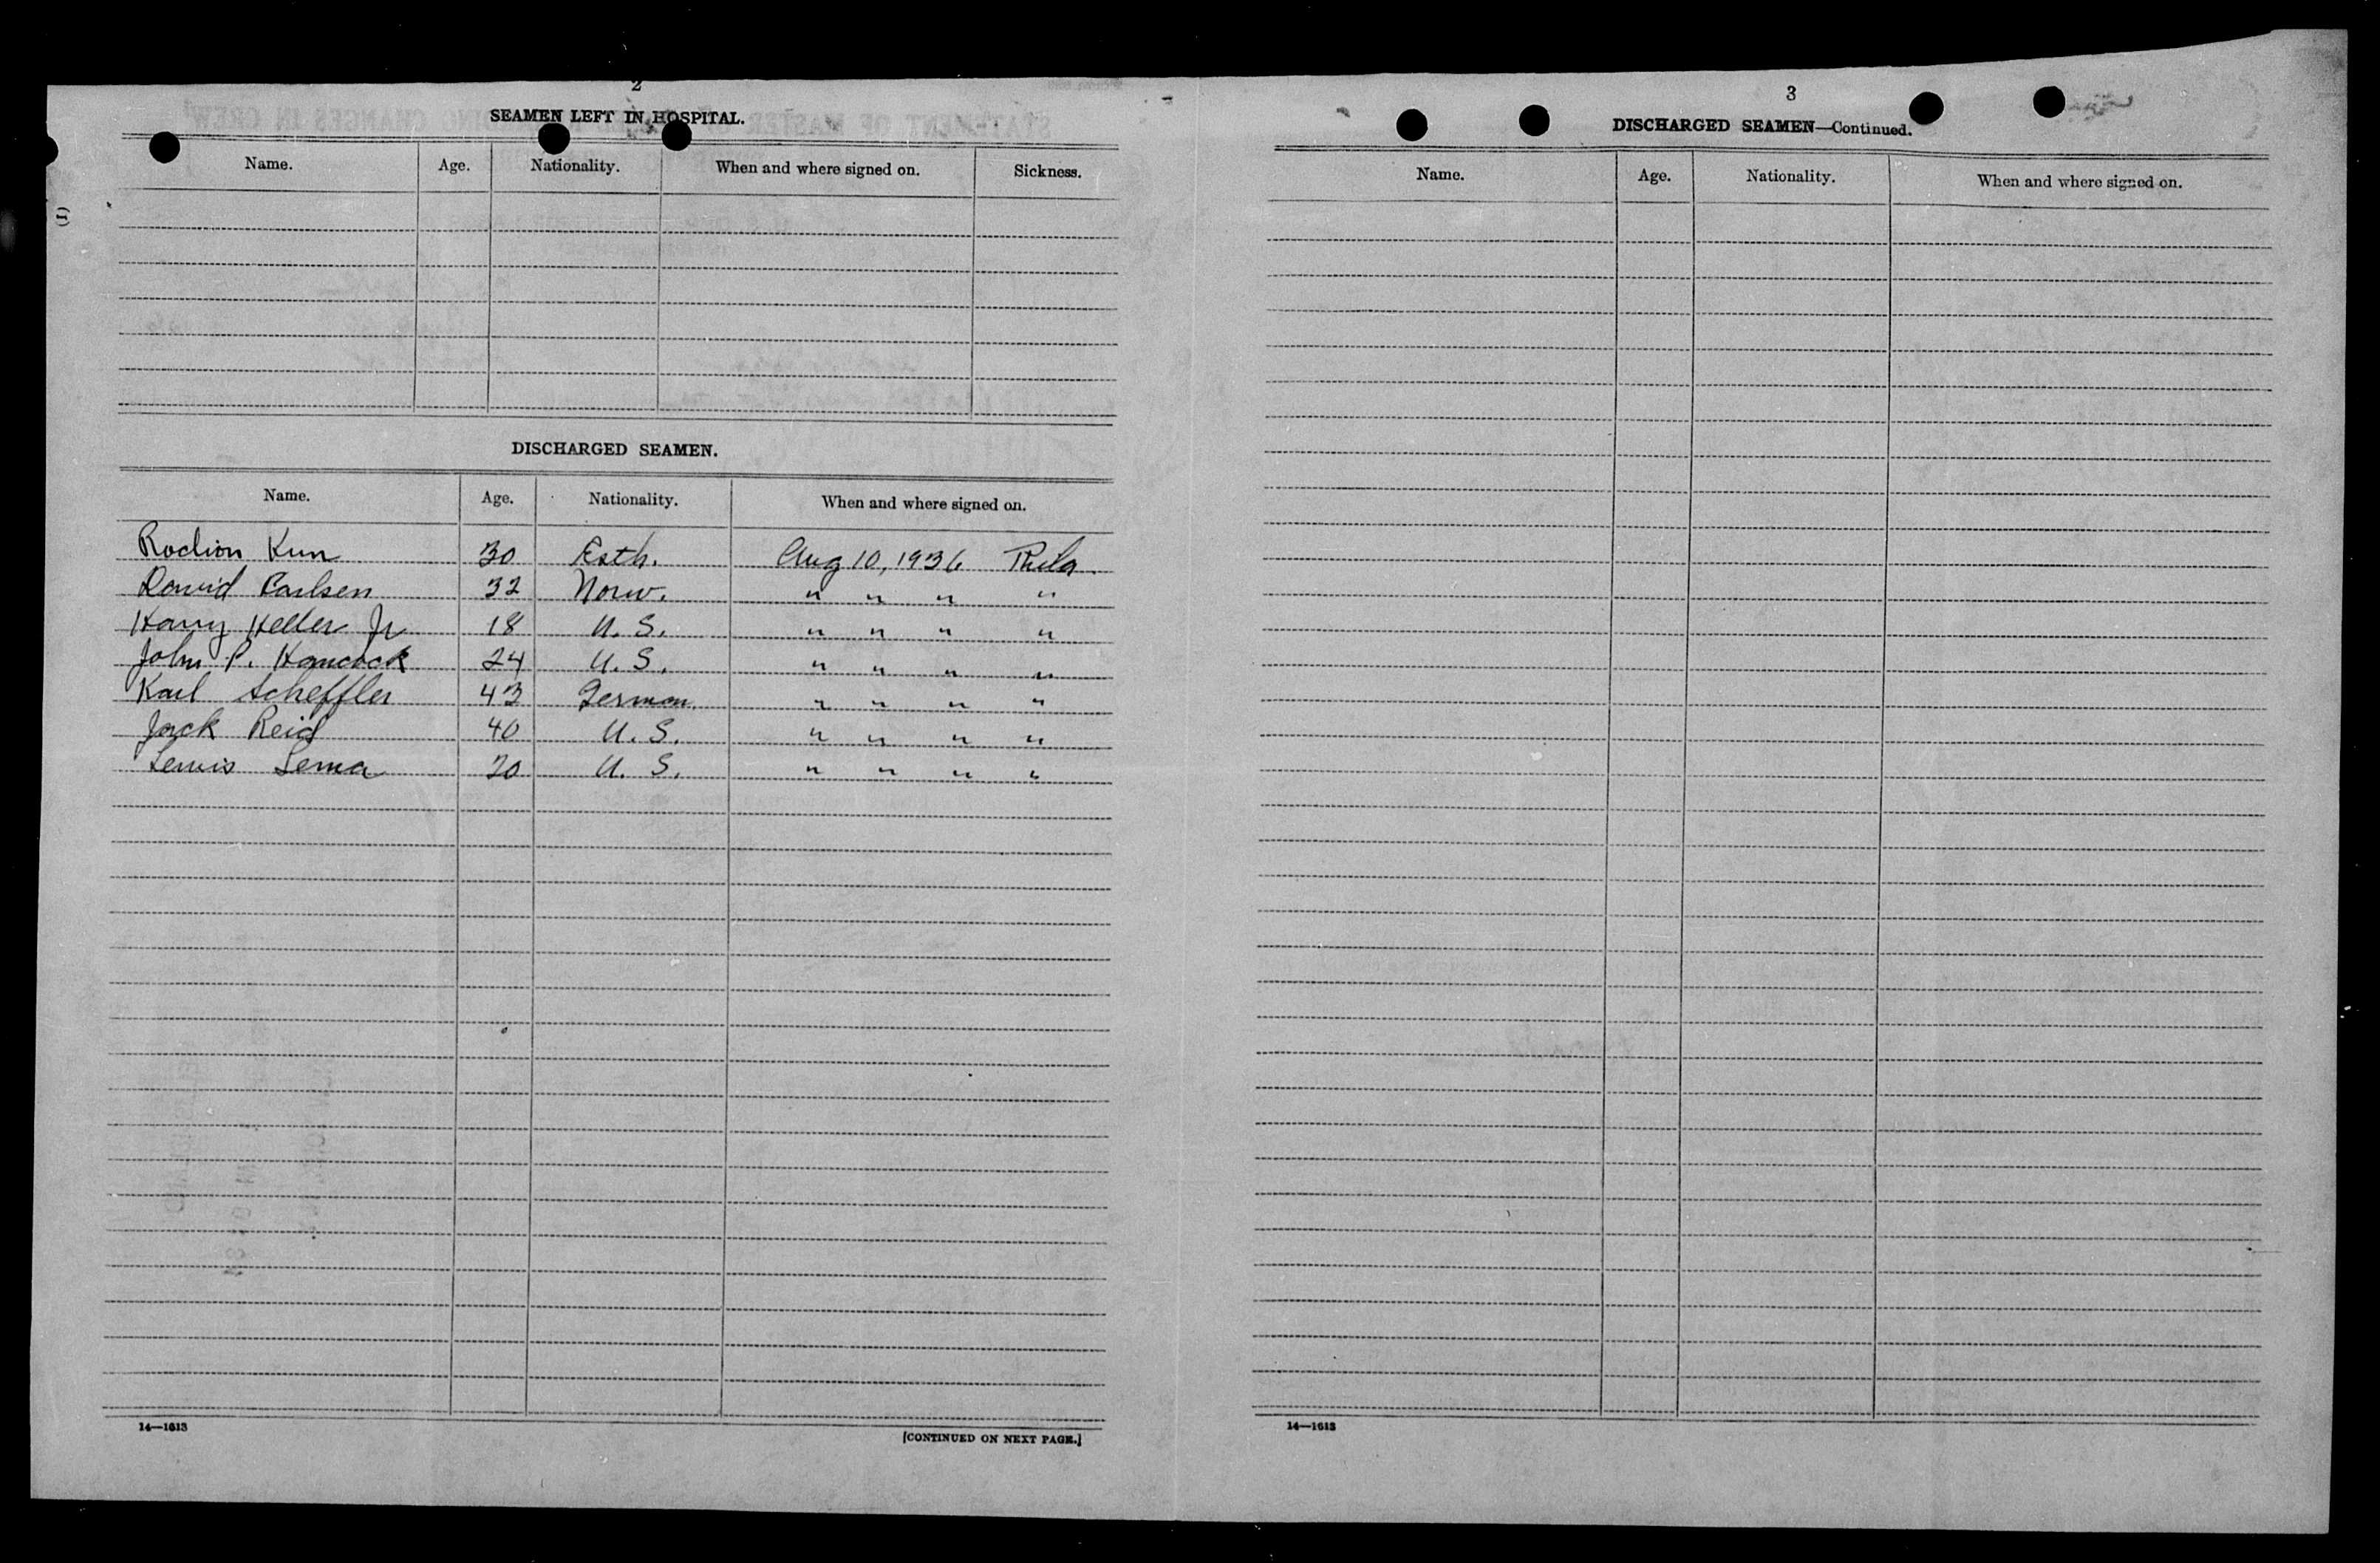 2
SEAMEN LEFT IN HOSPITAL.
Name. Age. Nationality. When and where signed on. Sickness.
(1)
DISCHARGED SEAMEN.
Name. Age. Nationality. When and where signed on.
Rodion Kun 30 Esth. Aug 10, 1936 Phila.
David Carlsen 32 Norw. " " " "
Harry Heller Jr 18 U.S. " " " "
John P. Hancock 24 U.S. " " " "
Karl Scheffler 43 German. " " " "
Jack Reid 40 U.S. " " " "
Lewis Lema 20 U.S. " " " "
14—1613
[CONTINUED ON NEXT PAGE.]
3
DISCHARGED SEAMEN—Continued.
Name. Age. Nationality. When and where signed on.
14—1613